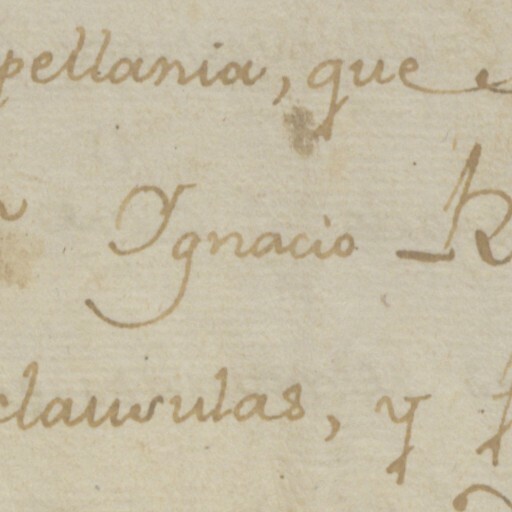 pellania, que
Ygnacio R
clausulas, y